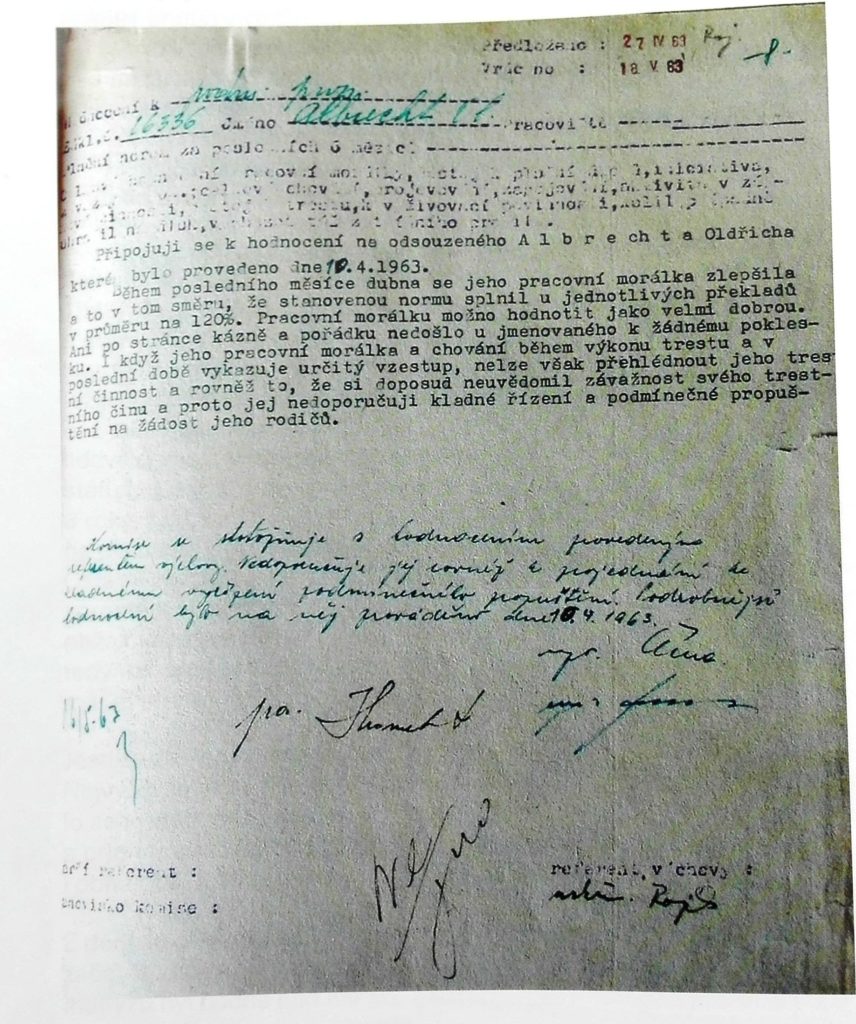 Předloženo : 27 IV 63 Raj.
Vráceno : 18 V. 63
k podm. prop.
16336 Jméno Albrecht Ol. Pracoviště
norem za posledních 6 měsíců
pracovní morálky, iniciativa,
chování, projevování, aktivita v
trestu,
Připojuji se k hodnocení na odsouzeného A l b r e c h t a Oldřicha
které bylo provedeno dne 10.4.1963.
Během posledního měsíce dubna se jeho pracovní morálka zlepšila
a to v tom směru, že stanovenou normu splnil u jednotlivých překladů
v průměru na 120%. Pracovní morálku možno hodnotit jako velmi dobrou.
Ani po stránce kázně a pořádku nedošlo u jmenovaného k žádnému pokles-
ku. I když jeho pracovní morálka a chování během výkonu trestu a v
poslední době vykazuje určitý vzestup, nelze však přehlédnout jeho tres
ní činnost a rovněž to, že si doposud neuvědomil závažnost svého trest-
ního činu a proto jej nedoporučuji kladné řízení a podmínečné propuš-
tění na žádost jeho rodičů.
Komise se ztotožňuje s hodnocením provedeným
referentem výchovy. Nedoporučuje jej rovněž k projednání ke
kladnému vyřízení podmínečného propuštění. Podrobnější
hodnocení bylo na něj prováděno dne 10.4.1963.
16/5.63
referent :
referent, výchovy :
stanovisko komise :